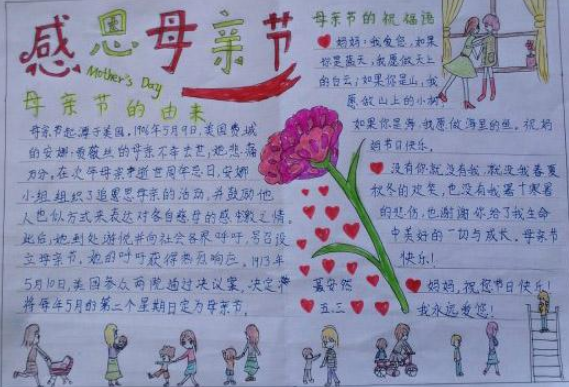 感恩母亲节
Mother's Day
母亲节的由来
母亲节起源于美国。1906年5月9日,美国费城
的安娜·贾薇丝的母亲不幸去世,她悲痛
万分。在次年母亲逝世周年忌日,安娜
小姐组织了追思母亲的活动,并鼓励他
人也以类似方式来表达对各自慈母的感激之情。
此后,她到处游说并向社会各界呼吁,号召设
立母亲节。她的呼吁获得热烈响应。1913年
5月10日,美国参众两院通过决议案,决定
将每年5月的第二个星期日定为母亲节。
母亲节的祝福语
妈妈:我爱您,如果
你是蓝天,我愿做天上
的白云;如果你是山,我
愿做山上的小树
如果你是海,我愿做海里的鱼。祝妈
妈节日快乐。
没有你就没有我,就没我春夏
秋冬的欢笑,也没有我寒十寒暑
的悲伤,也谢谢你给了我生命
中美好的一切与成长。母亲节
快乐!
妈妈,祝您节日快乐!
我永远爱您!
安然
五.三